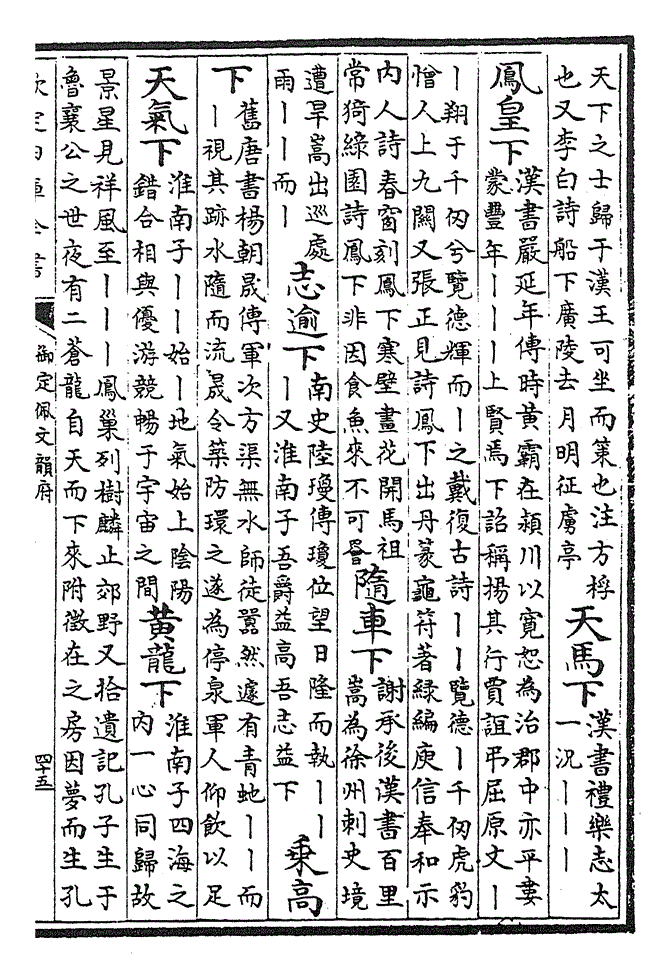 天下之士歸于漢王可坐而策也注方桴
也又李白詩船下廣陵去月明征虜亭
天馬下
漢書禮樂志太
一況丨丨丨
鳳皇下
漢書嚴延年傳時黃霸在潁川以寬恕為治郡中亦平婁
蒙豐年丨丨丨上賢焉下詔稱揚其行賈誼弔屈原文丨
丨翔于千仞兮覽德輝而丨之戴復古詩丨丨覽德丨千仞虎豹
憎人上九關又張正見詩鳳下出丹篆龜符著綠編庾信奉和示
内人詩春窗刻鳳下寒壁畫花開馬祖
常猗綠園詩鳳下非因食魚來不可罾
隨車下
謝承後漢書百里
嵩為徐州刺史境
遭旱嵩出巡處
雨丨丨而丨
志逾下
南史陸瓊傳瓊位望日隆而執丨丨
丨又淮南子吾爵益高吾志益下
乗高
下
舊唐書楊朝晟傳軍次方渠無水師徒囂然遽有青虵丨丨而
丨視其跡水隨而流晟令築防環之遂為停泉軍人仰飲以足
天氣下
淮南子丨丨始丨地氣始上陰陽
錯合相與優游競暢于宇宙之間
黃龍下
淮南子四海之
内一心同歸故
景星見祥風至丨丨丨鳳巢列樹麟止郊野又拾遺記孔子生于
魯襄公之世夜有二蒼龍自天而下來附徵在之房因夢而生孔
欽定四庫全書
御定佩文韻府
四十五